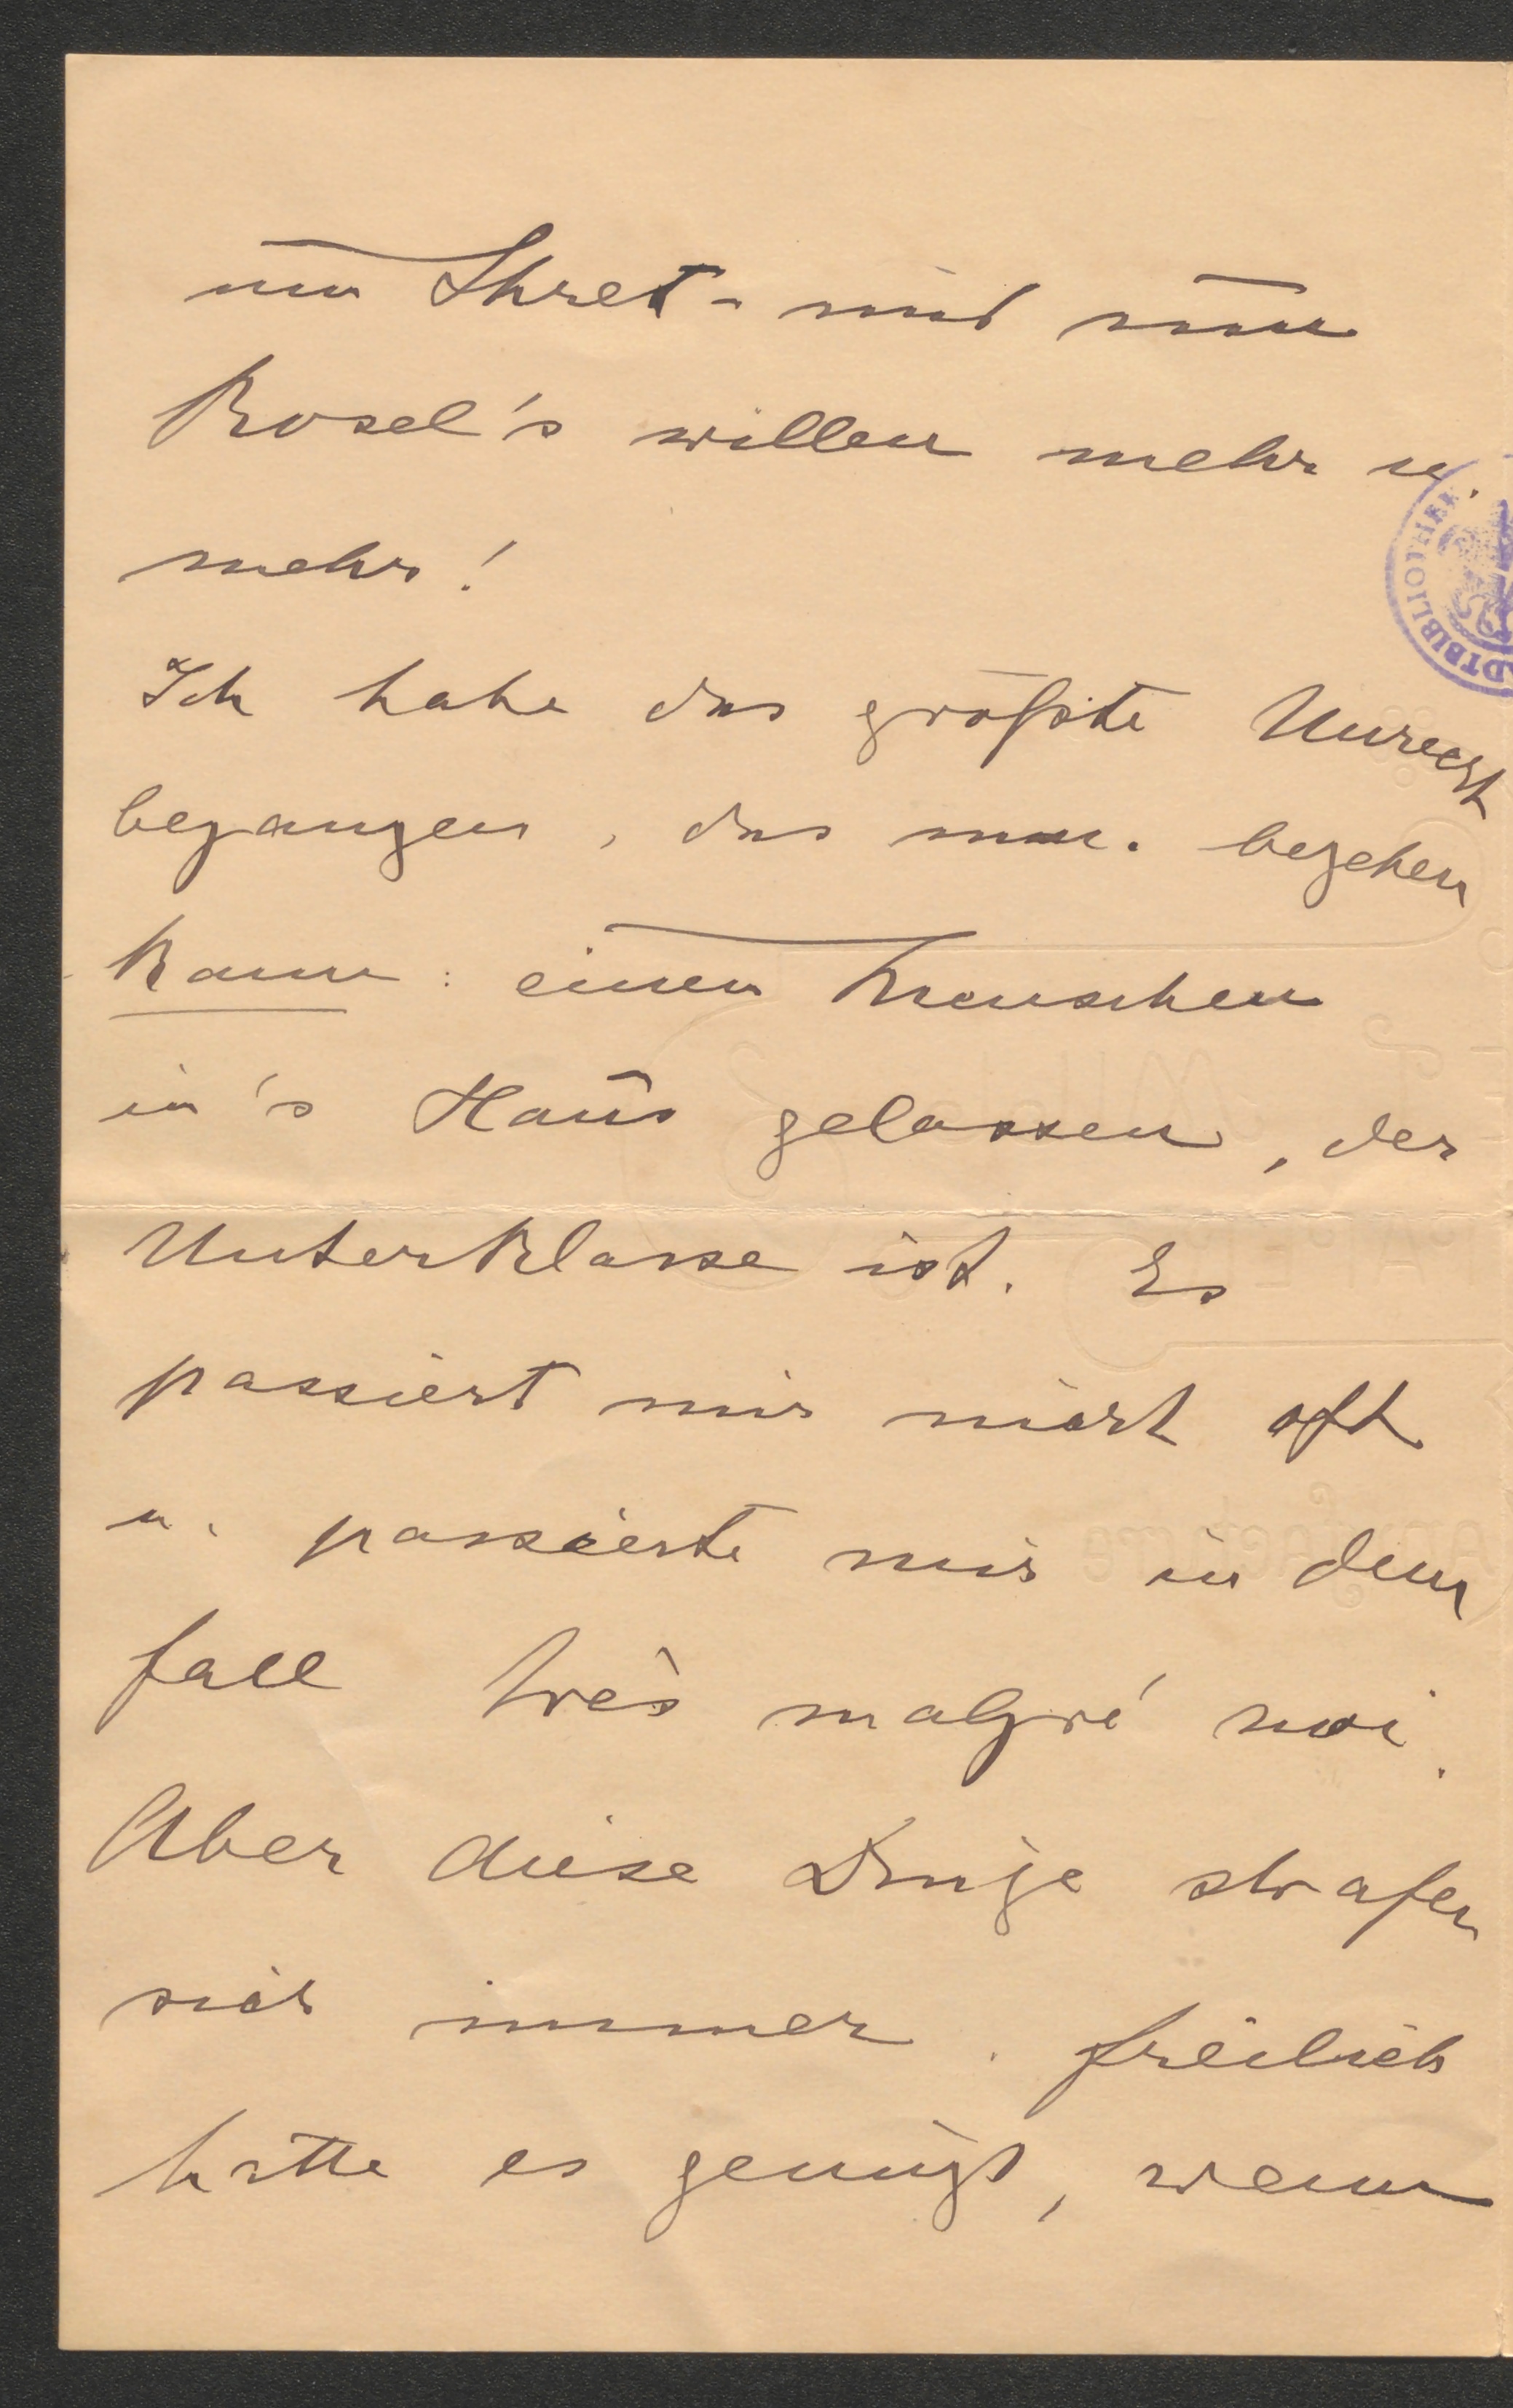 um Ihret- und um
Rosel's willen mehr u.
mehr!
Ich habe das größte Unrecht
begangen, das man begehen
kann: einen Menschen
in's Haus gelassen, der
Unterklasse ist. Es
passiert mir nicht oft
u. passierte mir in dem
Fall très malgré moi.
Aber diese Dinge strafen
sich immer. Freilich
hätte es genügt, wenn
DTBIBLIOTHEK